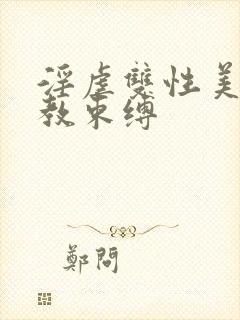 淫虐雙性美
教束縛
鄭問